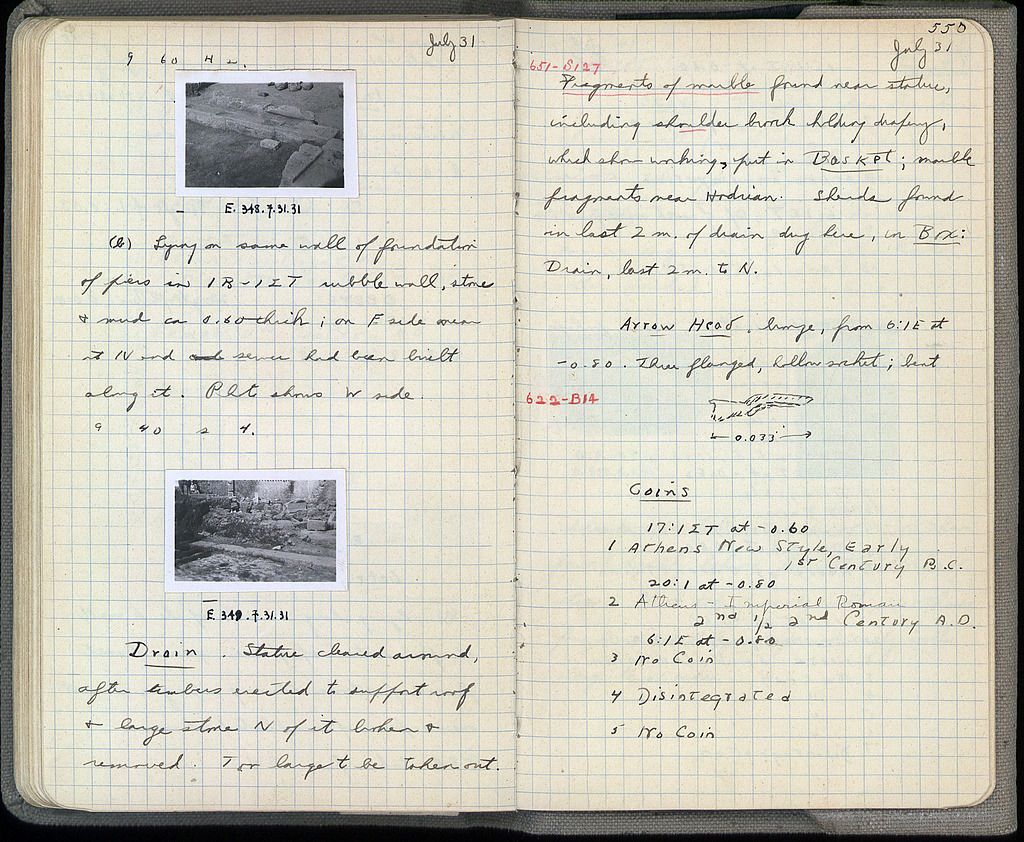 July 31
9 60 H
E. 348. 7.31.31
(b) Lying on same wall of foundation
of piers in 1B-1ΣT rubble wall, stone
& mud ca 0.60 thick; on E side
at N end sewer had been built
along it. Pht shows W side.
9 40 2 4.
E. 349. 7.31.31
Drain. Statue cleared around,
after timbers erected to support roof
& large stone N of it broken &
removed. Too large to be taken out.
550
July 31
651-S127
Fragments of marble found near statue,
including shoulder brooch holding drapery,
which show working, put in Basket; marble
fragments near Hadrian. Sherds found
in last 2 m. of drain dug here, in Box:
Drain, last 2 m. to N.
Arrow Head, bronze, from 6:1E at
-0.80. Three flanged, hollow socket; bent
622-B14
0.033
Coins
17:1ΣT at -0.60
1 Athens New Style, Early
1st Century B.C.
20:1 at -0.80
2 Athens - Imperial Roman
2nd 1/2 2nd Century A.D.
6:1E at -0.80
3 No Coin
4 Disintegrated
5 No Coin